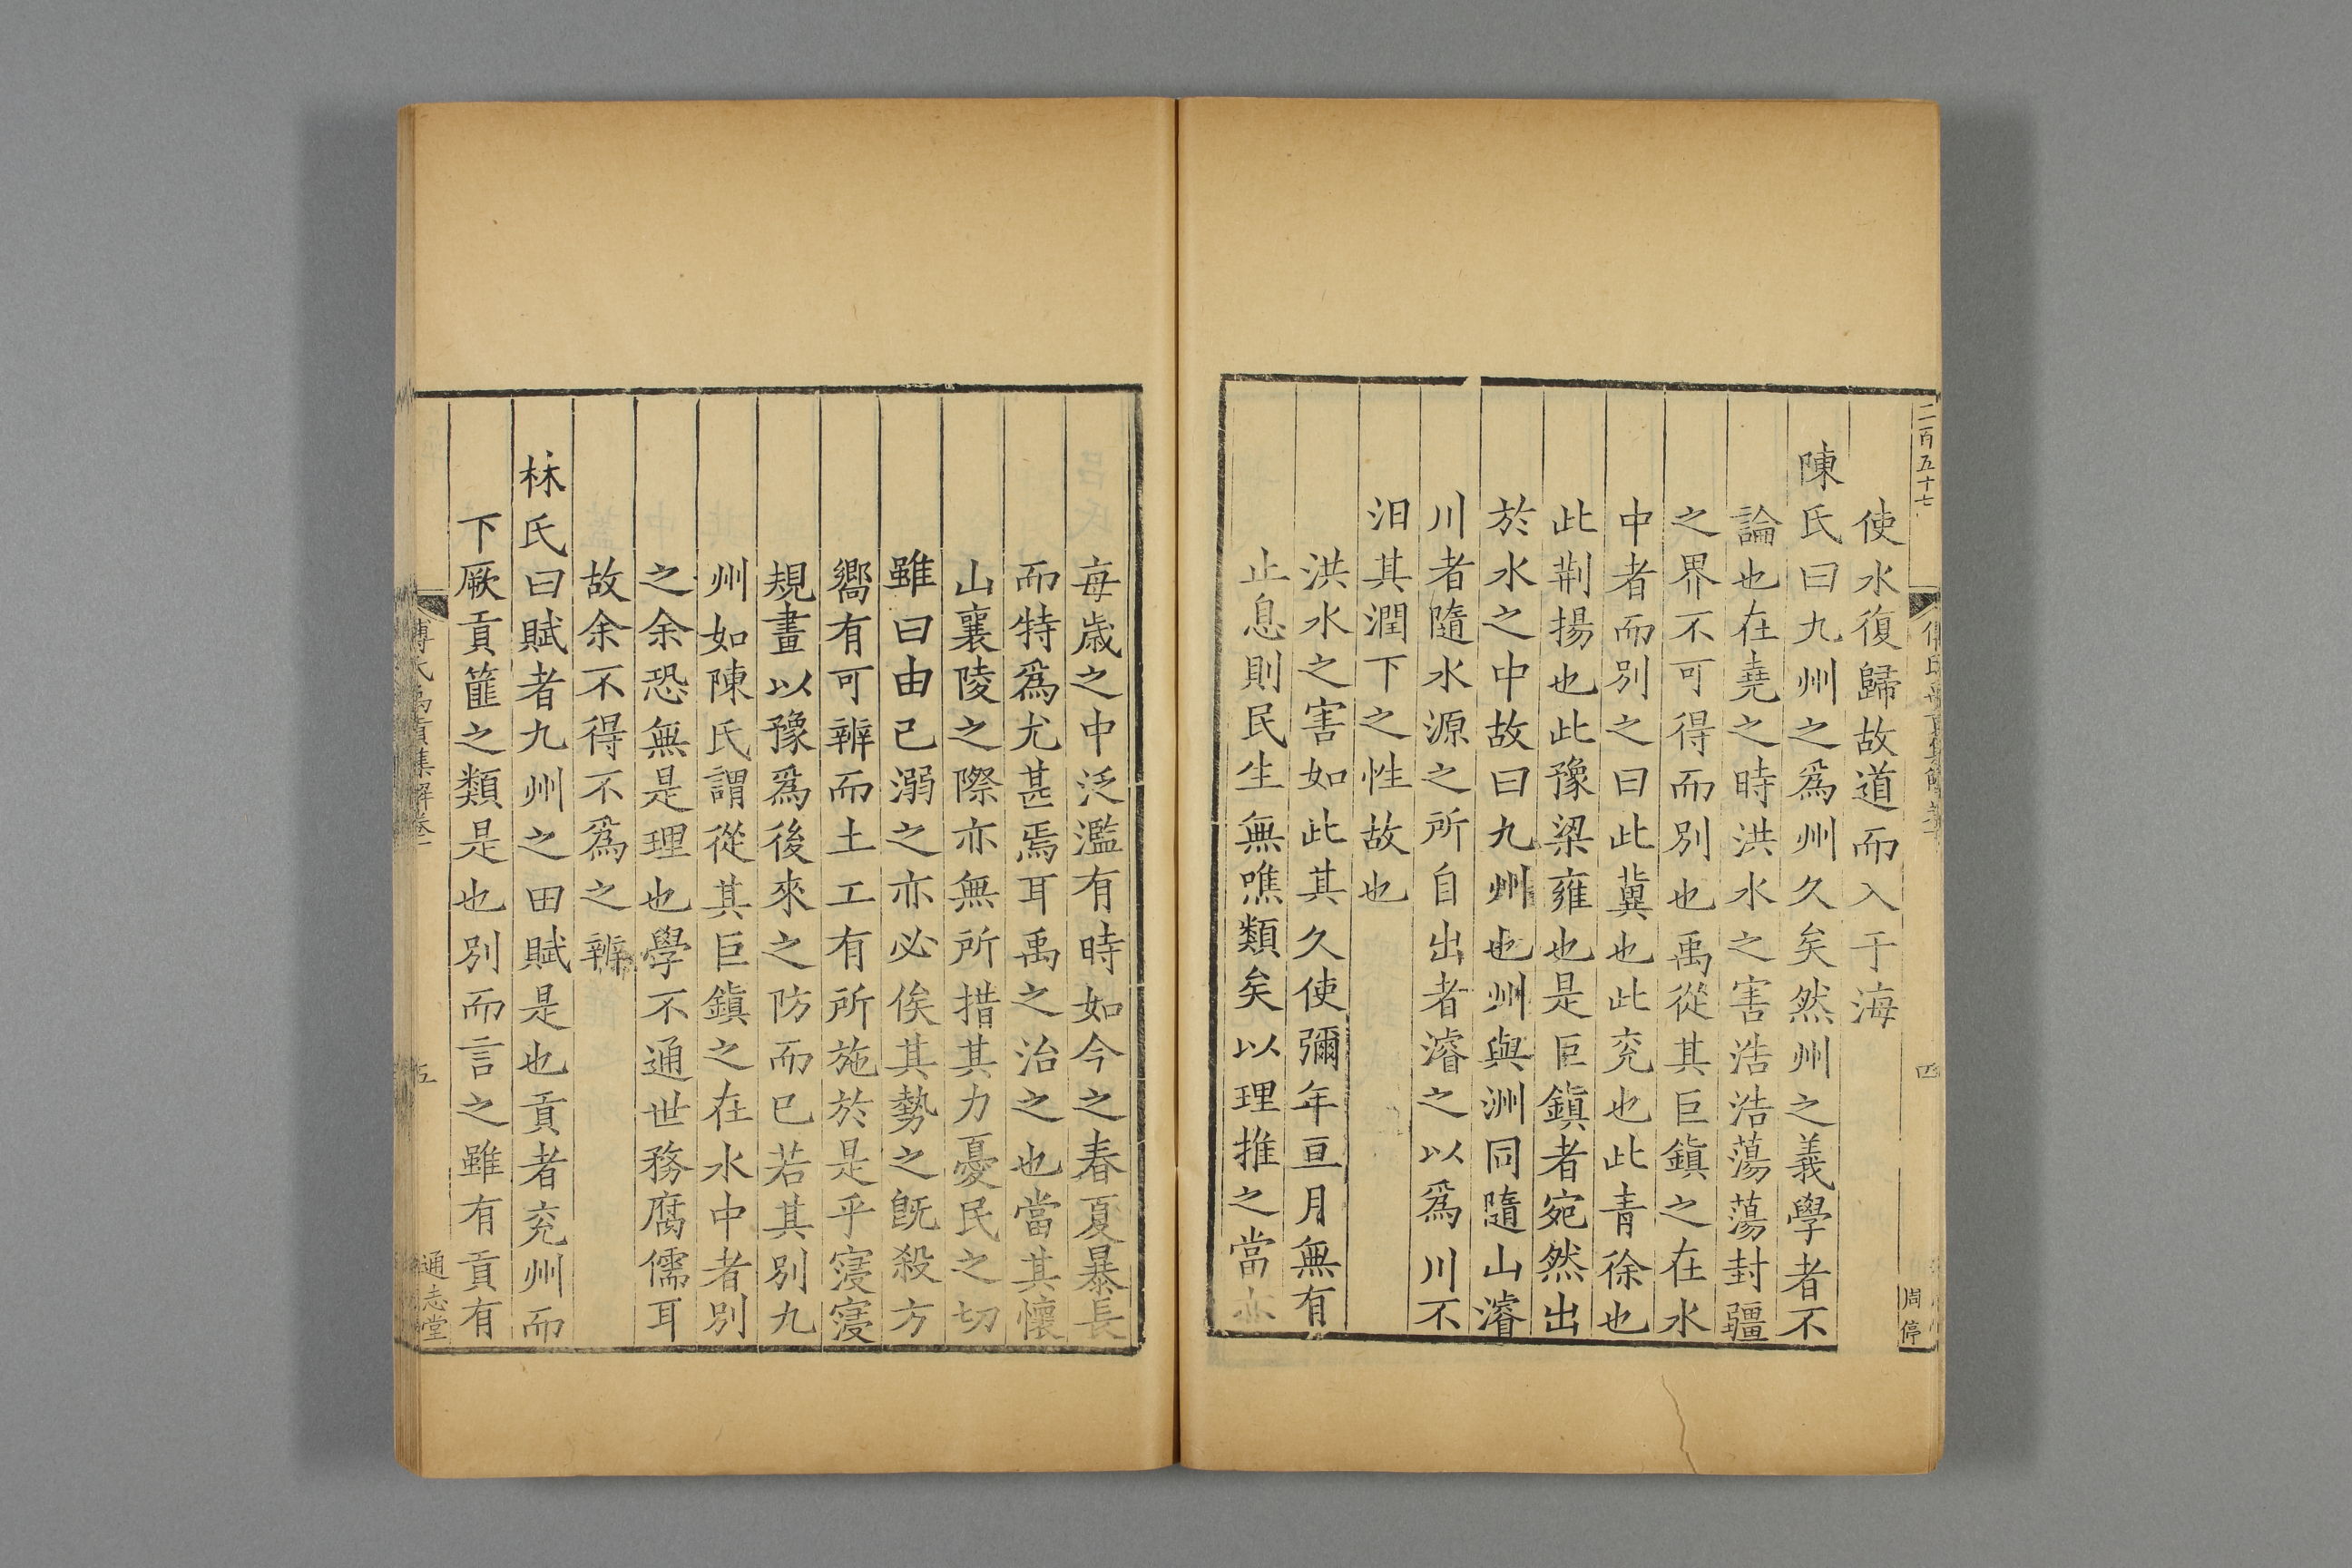 二百五十七
四
周停
使水復歸故道而入于海
陳氏曰九州之爲州久矣然州之義學者不
論也在堯之時洪水之害浩浩蕩蕩封疆
之界不可得而別也禹從其巨鎮之在水
中者而別之曰此冀也此兖也此青徐也
此荆揚也此豫梁雍也是巨鎮者宛然出
於水之中故曰九州也州與洲同隨山濬
川者隨水源之所自出者濬之以爲川不
汨其潤下之性故也
洪水之害如此其久使彌年亘月無有
止息則民生無噍類矣以理推之當亦
每歲之中泛濫有時如今之春夏暴長
而特爲尤甚焉耳禹之治之也當其懷
山襄陵之際亦無所措其力憂民之切
雖曰由己溺之亦必俟其勢之旣殺方
嚮有可辨而土工有所施於是乎寖寖
規畫以豫爲後來之防而已若其別九
州如陳氏謂從其巨鎮之在水中者別
之余恐無是理也學不通世務腐儒耳
故余不得不爲之辨
林氏曰賦者九州之田賦是也貢者兖州而
下厥貢篚之類是也別而言之雖有貢有
傅氏禹貢集解卷一
五
通志堂